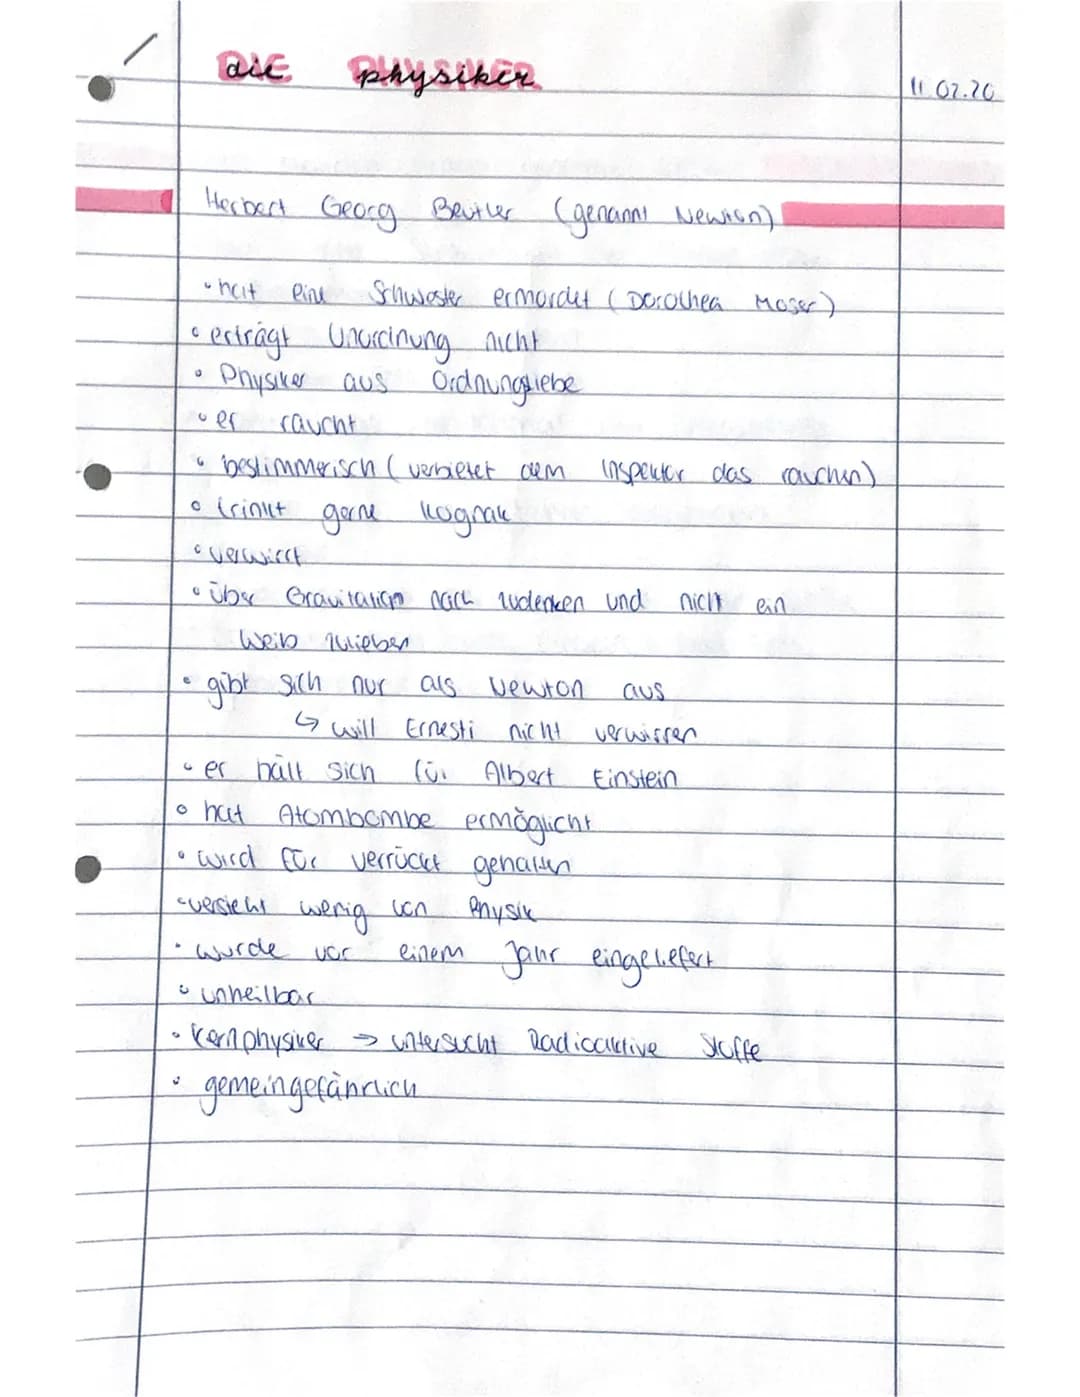 die physiker
11.02.20
Herbert Georg Beutler (genannt Newton)
• hat eine Schwester ermordet (Dorothea Moser)
• erträgt Unordnung nicht
• Physiker aus Ordnungsliebe
• er raucht
• bestimmerisch (verbietet dem Inspektor das rauchen)
• trinkt gerne Kognak
• verwirrt
• über Gravitation nach zudenken und nicht ein
Weib zulieben
• gibt sich nur als Newton aus
↳ will Ernesti nicht verwirren
• er hält sich für Albert Einstein
• hat Atombombe ermöglicht
• wird für verrückt gehalten
• versteht wenig von Physik
• wurde vor einem Jahr eingeliefert
• unheilbar
• Kernphysiker → untersucht Radioaktive Stoffe
• gemeingefährlich